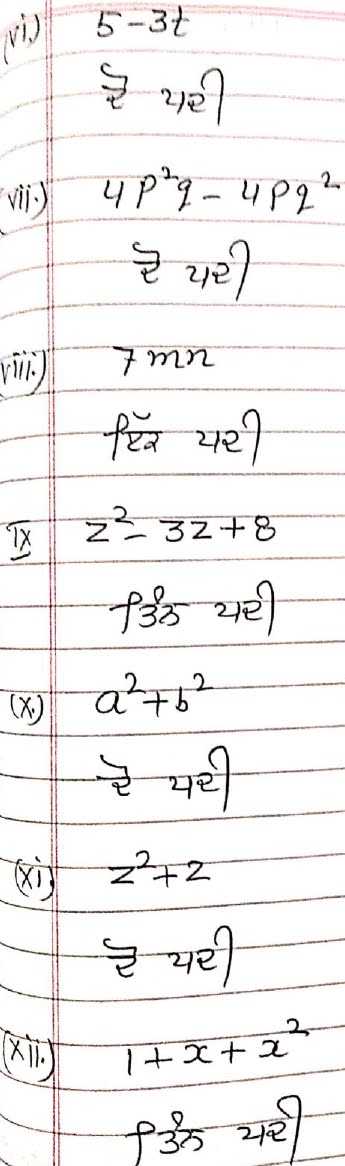 (vi.) 5-3t
ਦੋ ਪਦੀ
(vii.) 4p²q - 4pq²
ਦੋ ਪਦੀ
(viii.) 7mn
ਇੱਕ ਪਦੀ
IX z²- 3z+8
ਤਿੰਨ ਪਦੀ
(x.) a²+b²
ਦੋ ਪਦੀ
(xi) z²+z
ਦੋ ਪਦੀ
(xii.) 1+x+x²
ਤਿੰਨ ਪਦੀ